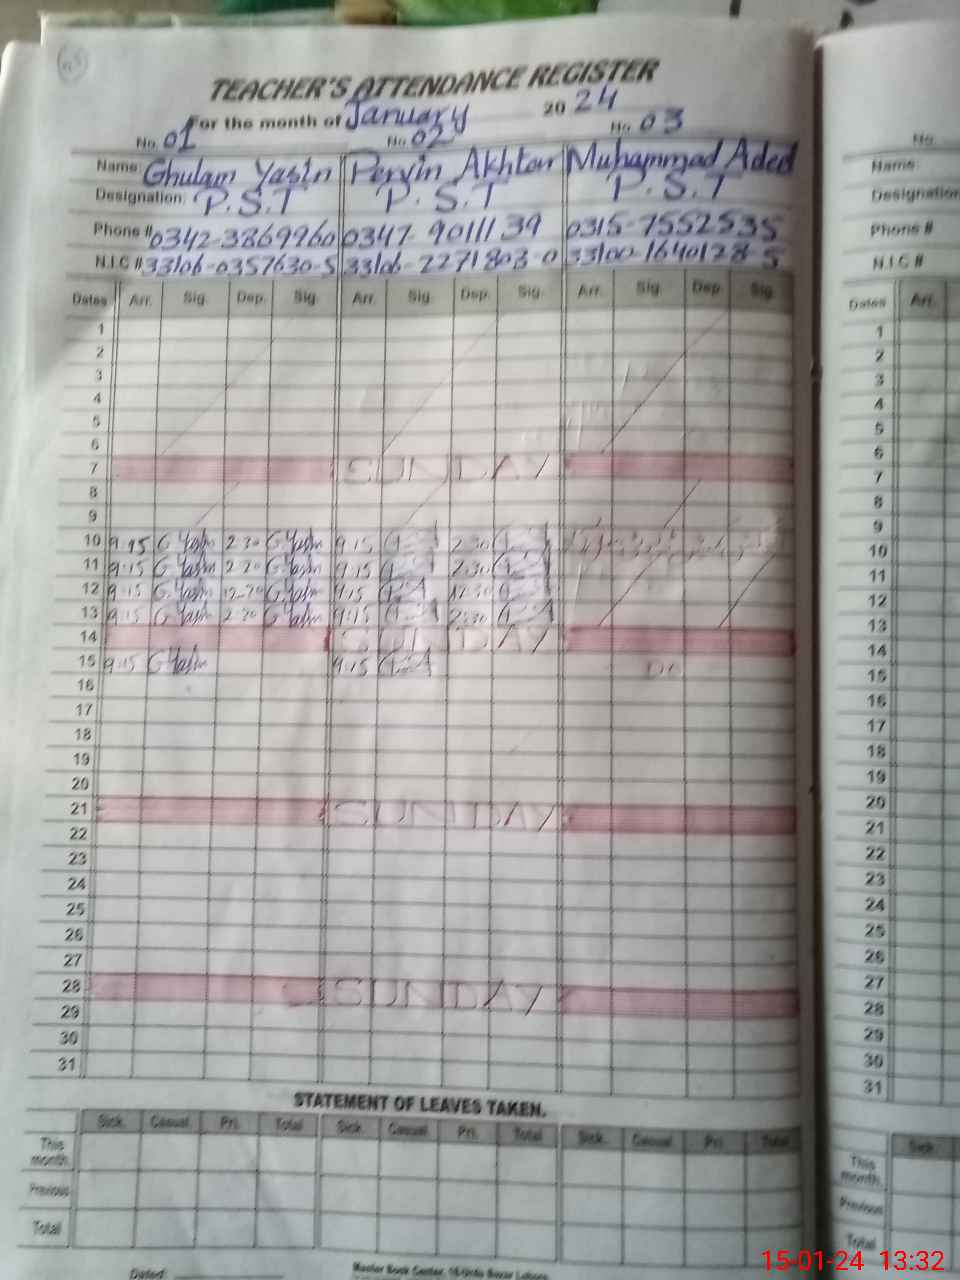 TEACHER'S ATTENDANCE REGISTER
For the month of January 2024
No. 01 No. 02 No. 03
Name: Ghulam Yasin Pervin Akhtar Muhammad Adeel
Designation: P.S.T P.S.T P.S.T
Phone # 0342-3869960 0347-9011139 0315-7552535
N.I.C # 33106-0357630-5 33106-2271803-0 33100-1640128-5
Dates Arr. Sig. Dep. Sig. Arr. Sig. Dep. Sig. Arr. Sig. Dep. Sig.
1
2
3
4
5
6
7 SUNDAY
8
9
10 9:15 G.Yasin 2:30 G.Yasin 9:15 2:30
11 9:15 G.Yasin 2:30 G.Yasin 9:15 2:30
12 9:15 G.Yasin 12:30 G.Yasin 9:15 12:30
13 9:15 G.Yasin 2:30 G.Yasin 9:15 2:30
14 SUNDAY
15 9:15 G.Yasin 9:15
16
17
18
19
20
21 SUNDAY
22
23
24
25
26
27
28 SUNDAY
29
30
31
STATEMENT OF LEAVES TAKEN.
Sick. Casual. Pri. Total Sick. Casual. Pri. Total Sick. Casual. Pri. Total
This month.
Previous
Total
Dated:
Master Book Center, 16-Urdu Bazar Lahore.
No.
Name:
Designation
Phone #
N.I.C #
Dates Arr.
1
2
3
4
5
6
7
8
9
10
11
12
13
14
15
16
17
18
19
20
21
22
23
24
25
26
27
28
29
30
31
Sick.
This month.
Previous
Total
15-01-24 13:32